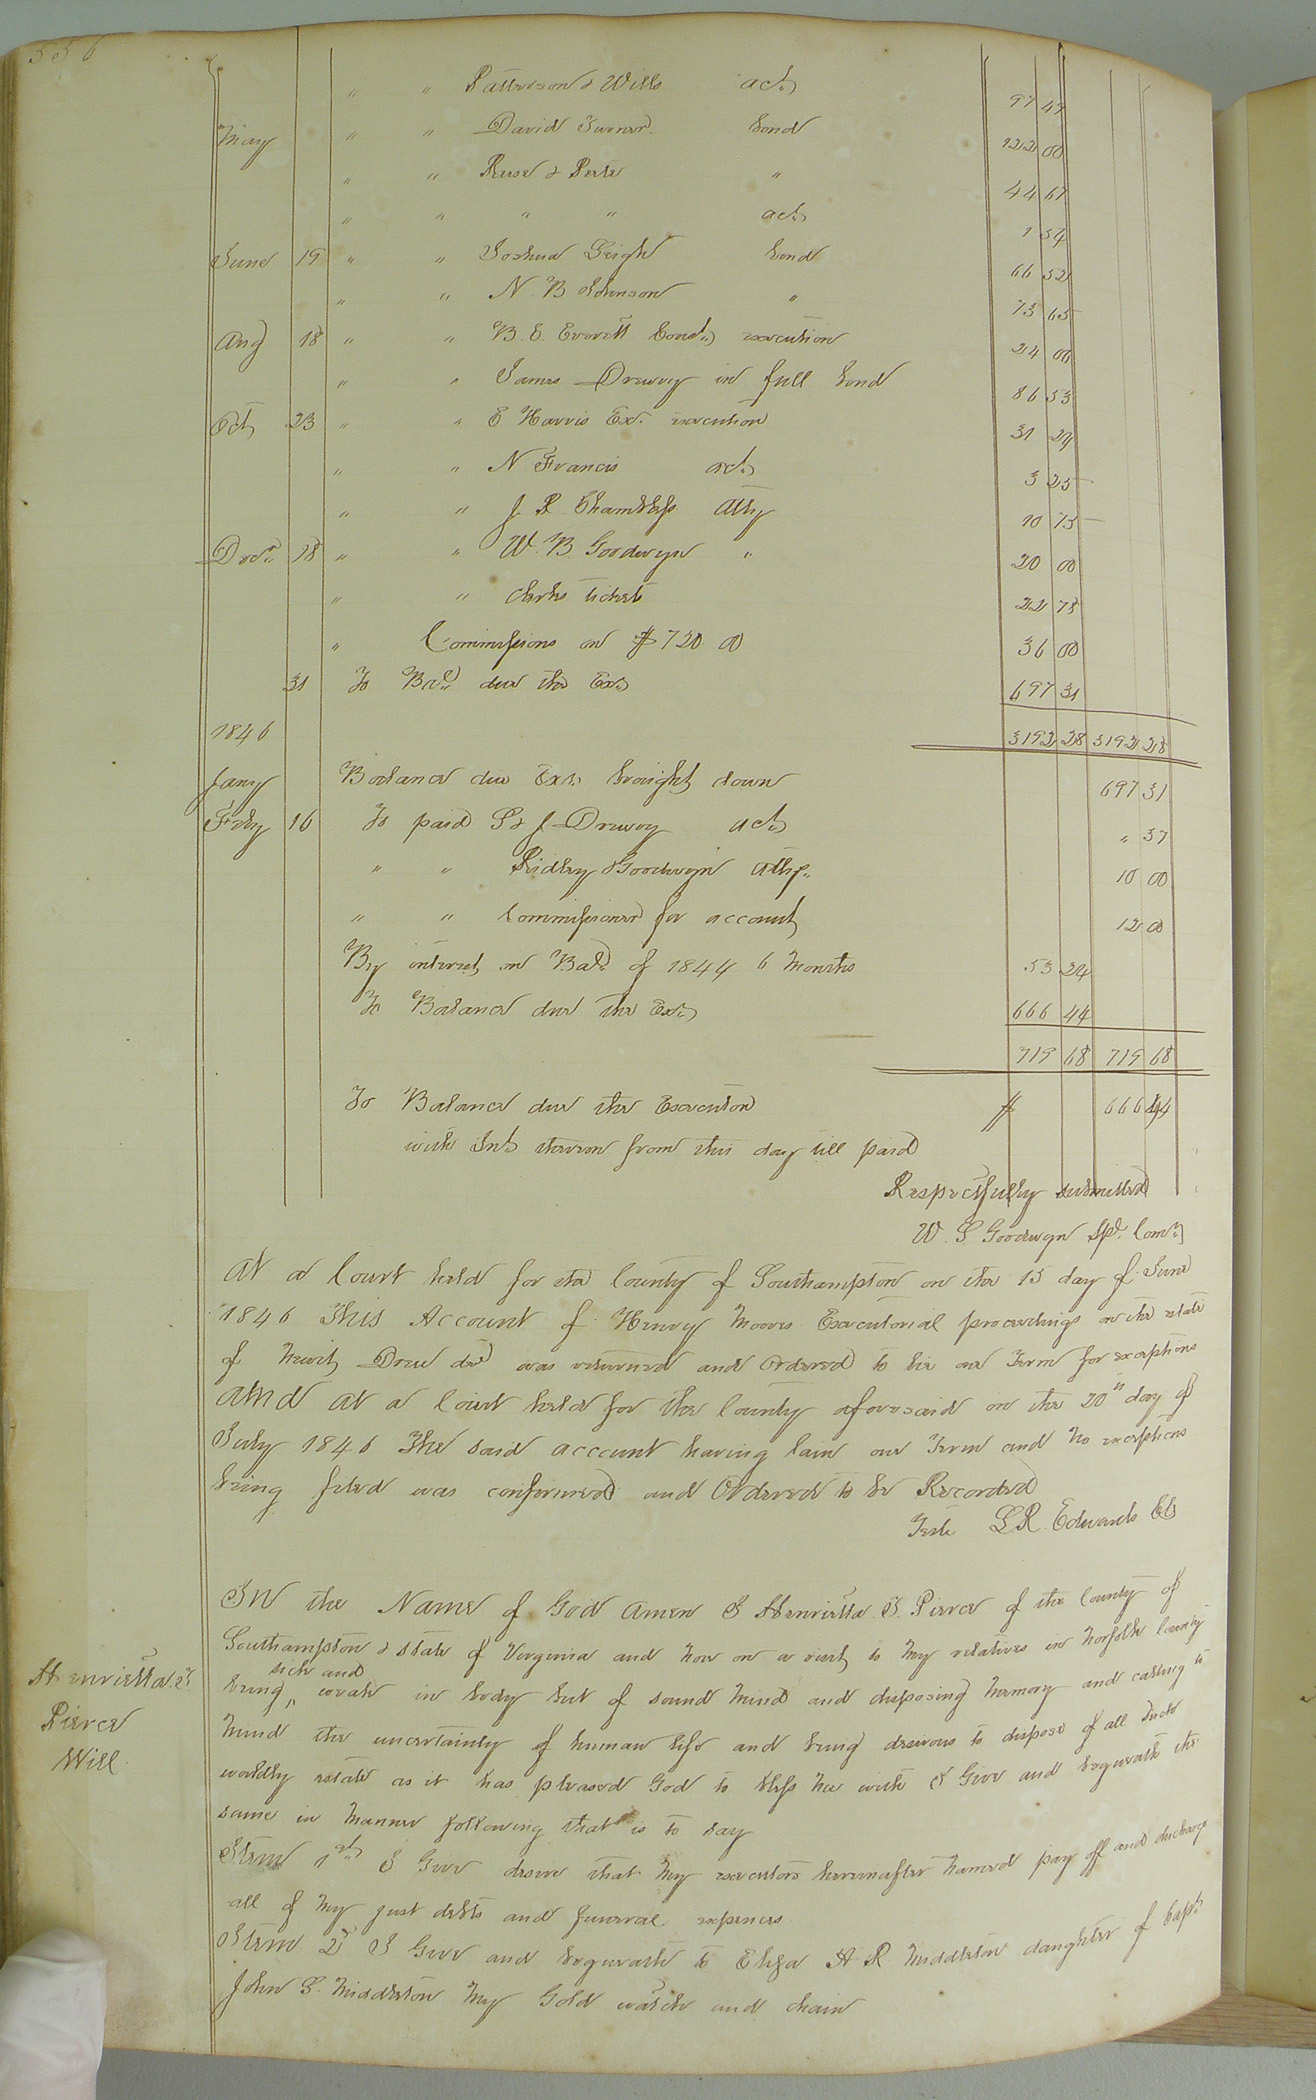 556
" " Patterson & Wills act. 97 47
May " " David Turner bond 122 00
" " Reese & Peete " 44 67
" " " " act. 1 54
June 19 " " Joshua Leigh bond 66 52
" " N. B Johnson " 73 65
Aug 18 " " B. E. Everett execution 24 00
" " James Drewry in full bond 86 53
Oct 23 " " E Harris Exr. execution 31 29
" " N Francis act. 3 25
" " J R Chambliss Atty 10 75
Decr 18 " " W. B. Goodwyn " 20 00
" " Clerks tickets 22 78
" Commissions on $720 00 36 00
31 To Bal. due the Exr. 697 31
3192 28 3192 28
1846
Jany Balance due Exr. brought down 697 31
Feby 16 To paid S & J Drewry act. " 37
" " Ridley & Goodwyn Attys. 10 00
" " Commissioner for account 12 00
By interest on Bal. of 1844 6 Months 53 24
To Balance due the Exr. 666 44
719 68 719 68
To Balance due the Executor $ 666 44
with Int. thereon from this day till paid
Respectfully submitted
W. S Goodwyn Spl. Comr.
At a Court held for the County of Southampton on the 15 day of June
1846 This Account of Henry Moores Executorial proceedings on the estate
of Newit Drew decd was returned and Ordered to lie one Term for exceptions
And At a Court held for the County aforesaid on the 20th day of
July 1846 The said account having lain one Term and no exceptions
being filed was confirmed and Ordered to be Recorded
Teste L R. Edwards Clk
In the Name of God Amen I Henrietta T. Pierce of the County of
Southampton & State of Virginia and now on a visit to my relatives in Norfolk County
being sick and weak in body but of sound mind and disposing memory and calling to
mind the uncertainty of human life and being desirous to dispose of all such
worldly estate as it has pleased God to bless me with I Give and bequeath the
same in manner following that is to say
Item 1st. I Give desire that my executors hereinafter named pay off and discharge
all of my just debts and funeral expences
Item 2d I Give and bequeath to Eliza A R Middleton daughter of Capt.
John S. Middleton my Gold watch and chain
Henrietta T
Pierce
Will.